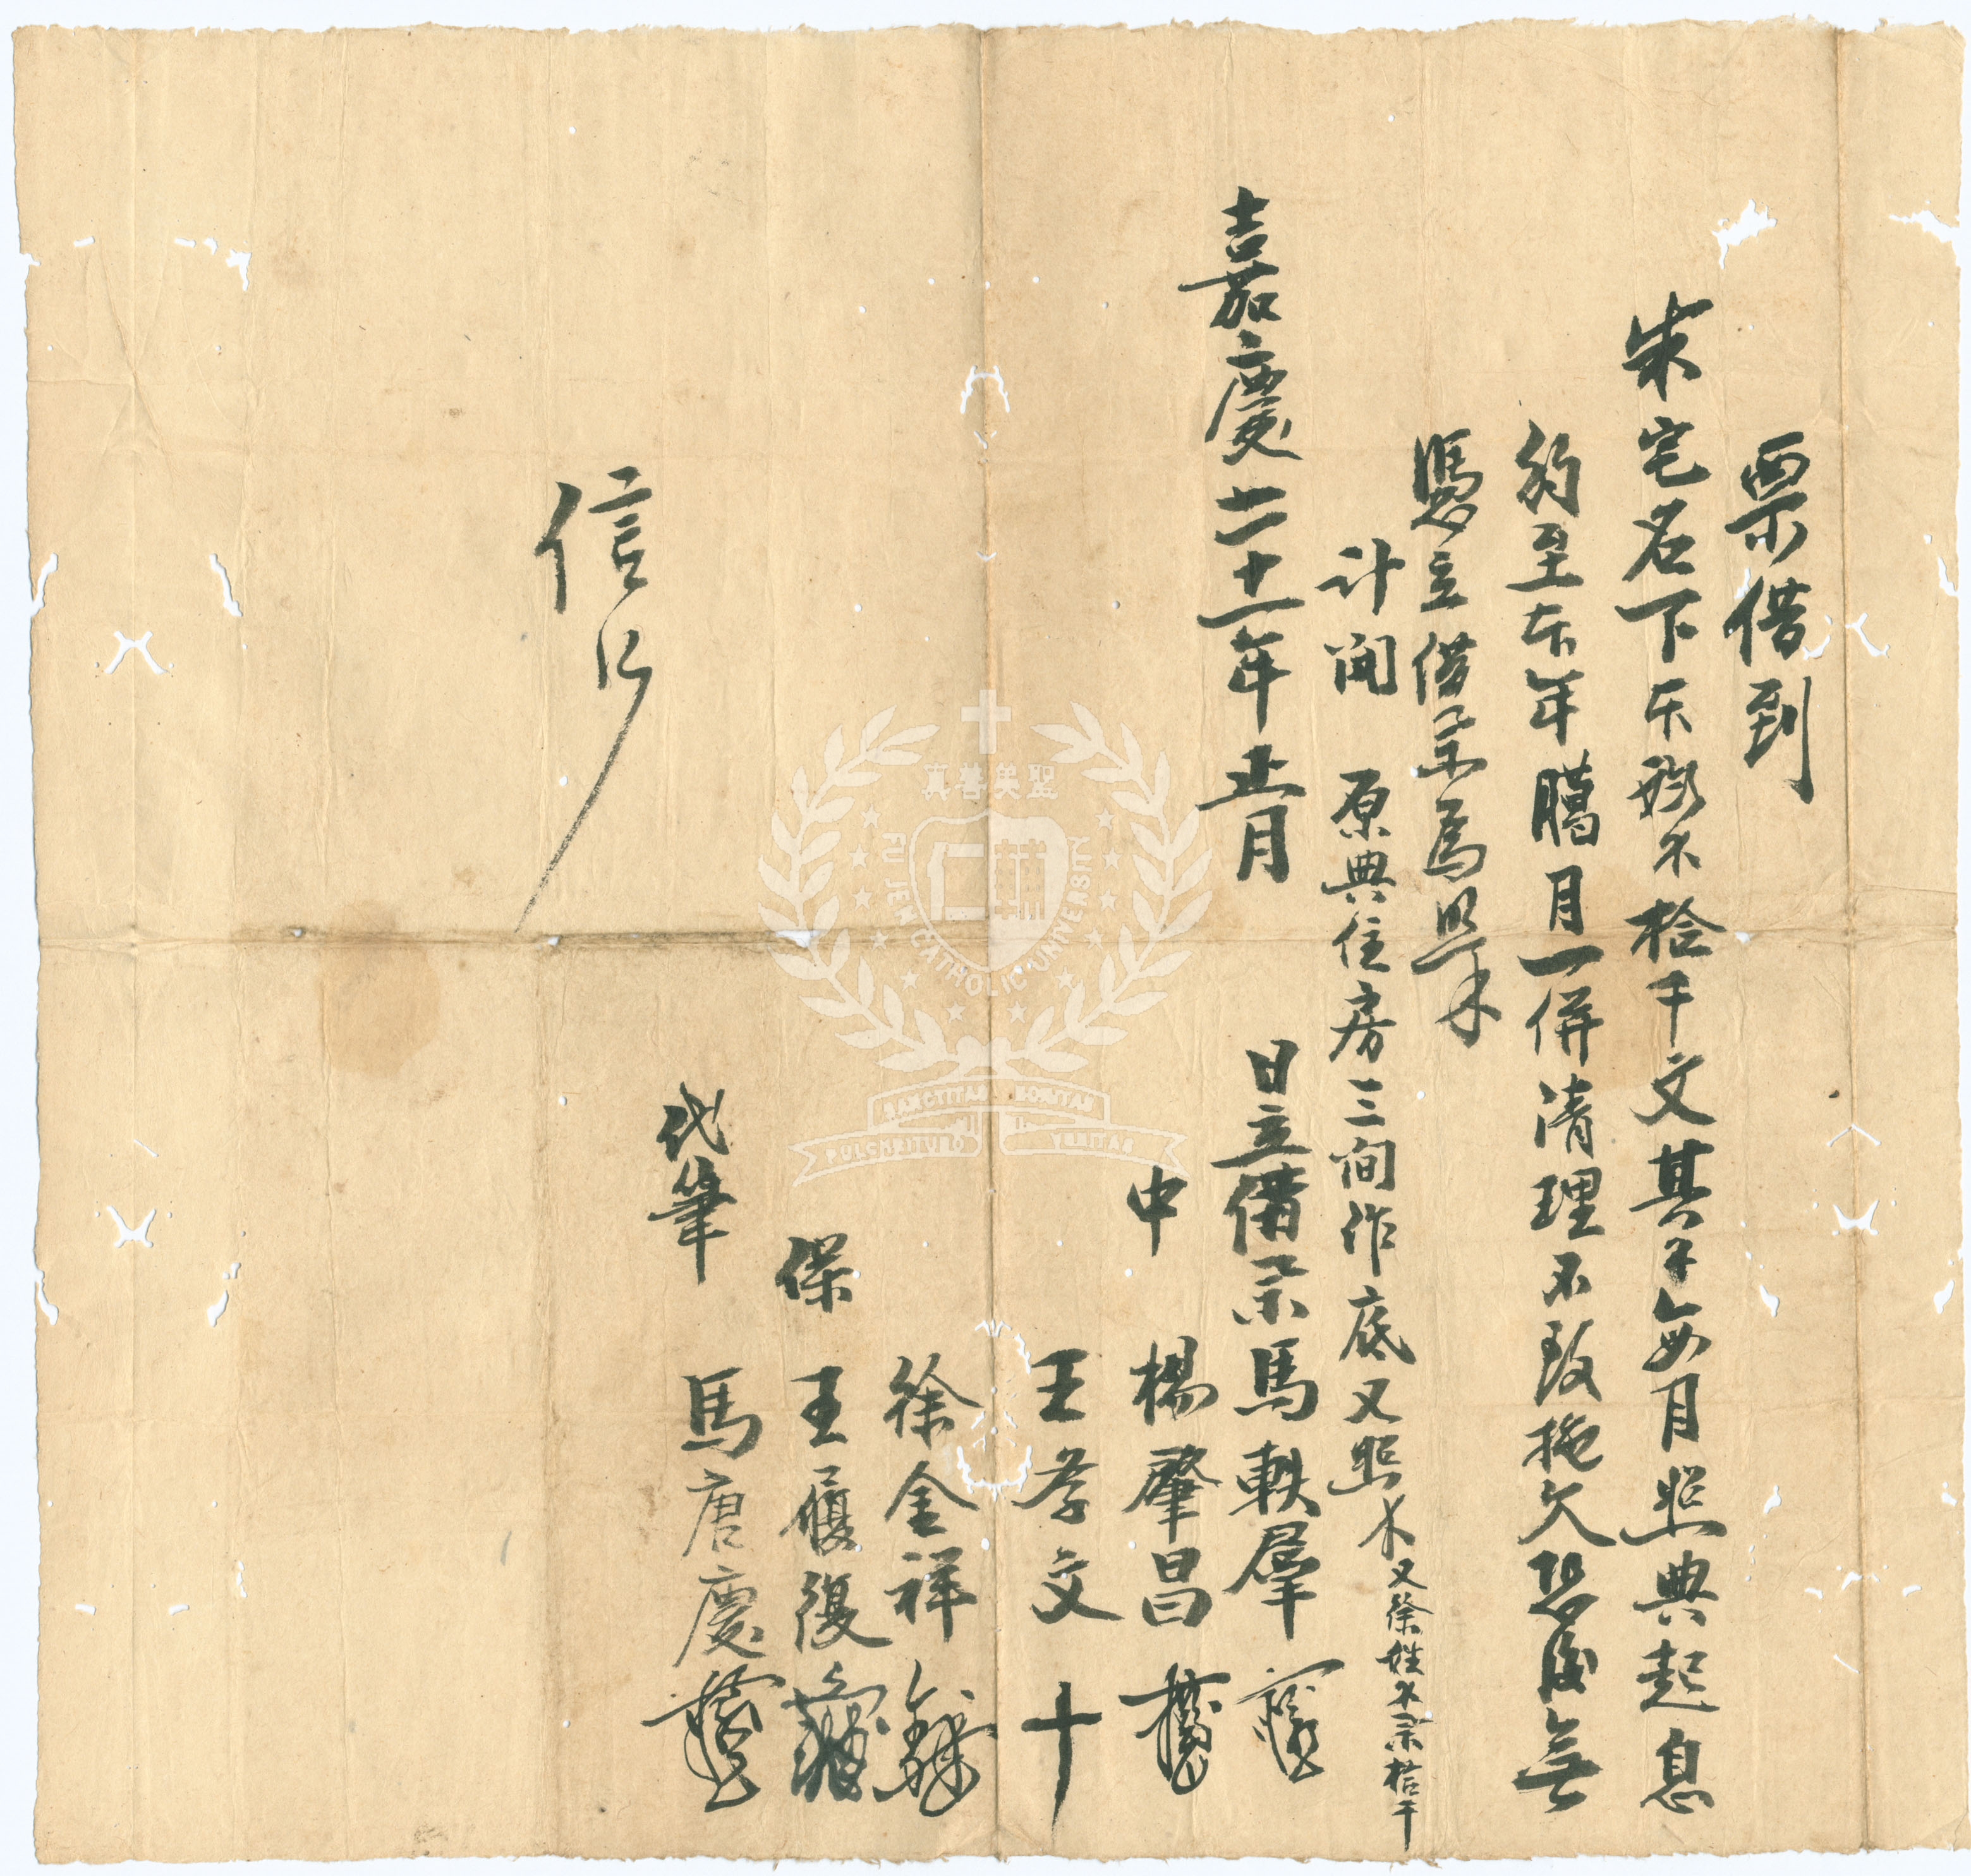 票借到
朱宅名下本錢不拾千文其子每月照典起息
約至本年臘月一併清理不致拖欠恐後無
憑立借票為照
計開 原典住房三間作底又照 又徐姓 票拾千
嘉慶二十一年正月 日立借票馬軼群
中 楊肇昌
王孝文 十
徐金祥
保 王履復
代筆 馬唐慶
信行
真善美聖
FU JEN CATHOLIC UNIVERSITY
SANCTITAS BONITAS
PULCHRITUDO VERITAS